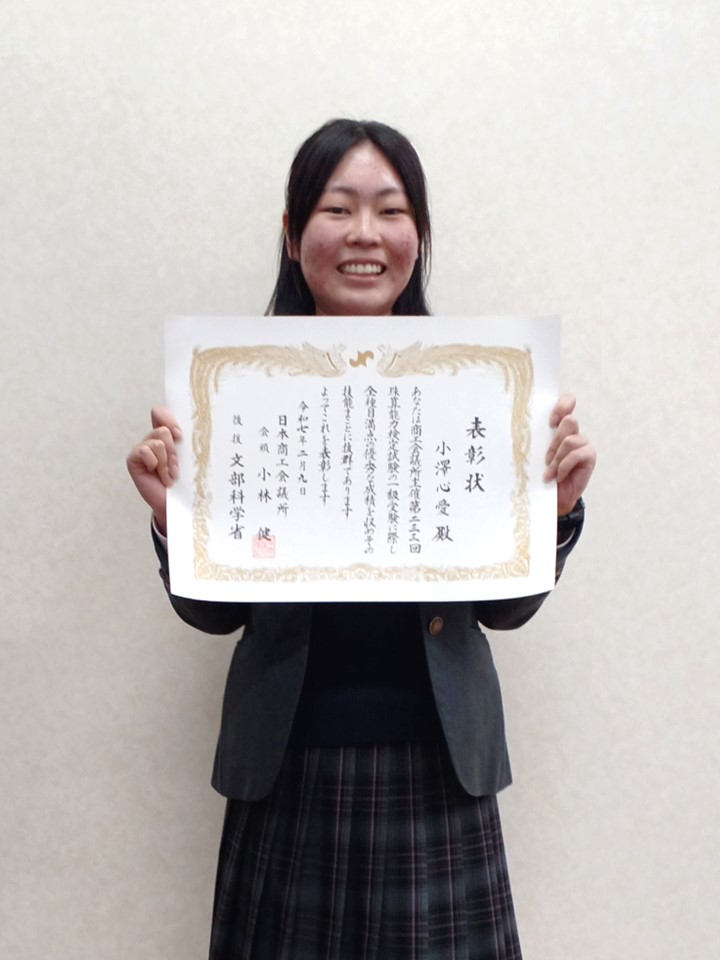 表彰状
小澤心愛殿
あなたは商工会議所主催第二三三回
珠算能力検定試験の一級受験に際し
全種目満点の優秀な成績を収めその
技能まことに抜群であります
よってこれを表彰します
令和七年二月九日
日本商工会議所
会頭 小林 健
後援 文部科学省